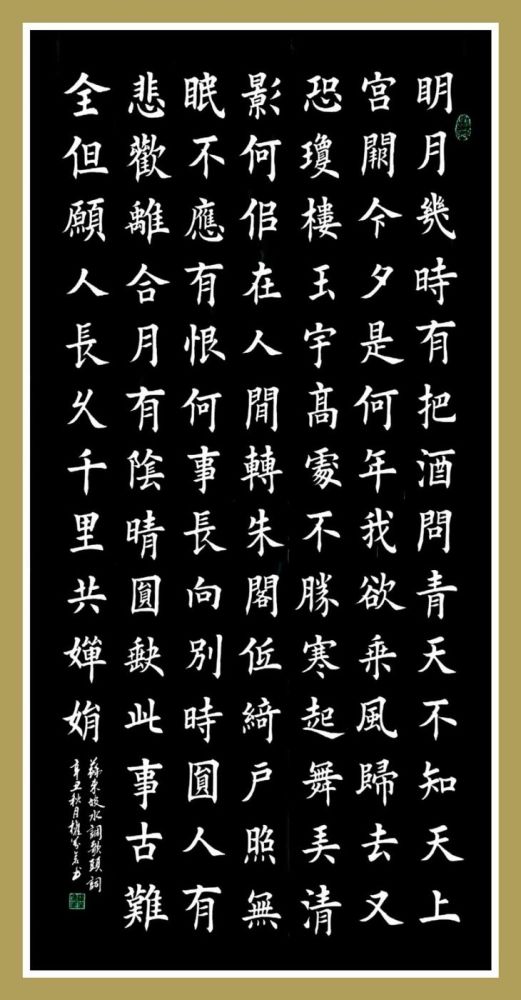 明月幾時有把酒問青天不知天上
宮闕今夕是何年我欲乘風歸去又
恐瓊樓玉宇高處不勝寒起舞弄清
影何似在人間轉朱閣低綺戶照無
眠不應有恨何事長向別時圓人有
悲歡離合月有陰晴圓缺此事古難
全但願人長久千里共嬋娟
蘇東坡水調歌頭詞
辛丑秋月書